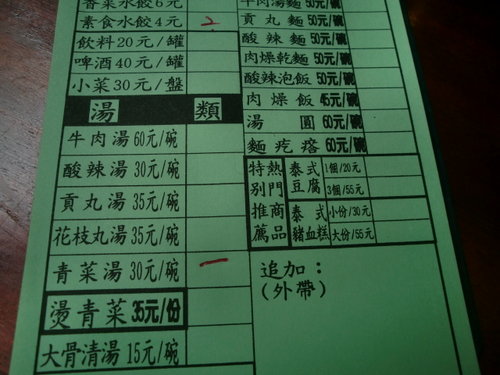 香菜水餃6元
素食水餃4元 2
飲料20元/罐
啤酒40元/罐
小菜30元/盤
湯 類
牛肉湯60元/碗
酸辣湯30元/碗
貢丸湯35元/碗
花枝丸湯35元/碗
青菜湯30元/碗 一
燙青菜35元/份
大骨清湯15元/碗
牛肉湯麵50元/碗
貢丸麵50元/碗
酸辣麵50元/碗
肉燥乾麵50元/碗
酸辣泡飯50元/碗
肉燥飯45元/碗
湯圓60元/碗
麵疙瘩60元/碗
特別推薦
熱門商品
泰式豆腐
1個/20元
3個/55元
泰式豬血糕
小份/30元
大份/55元
追加：
(外帶)